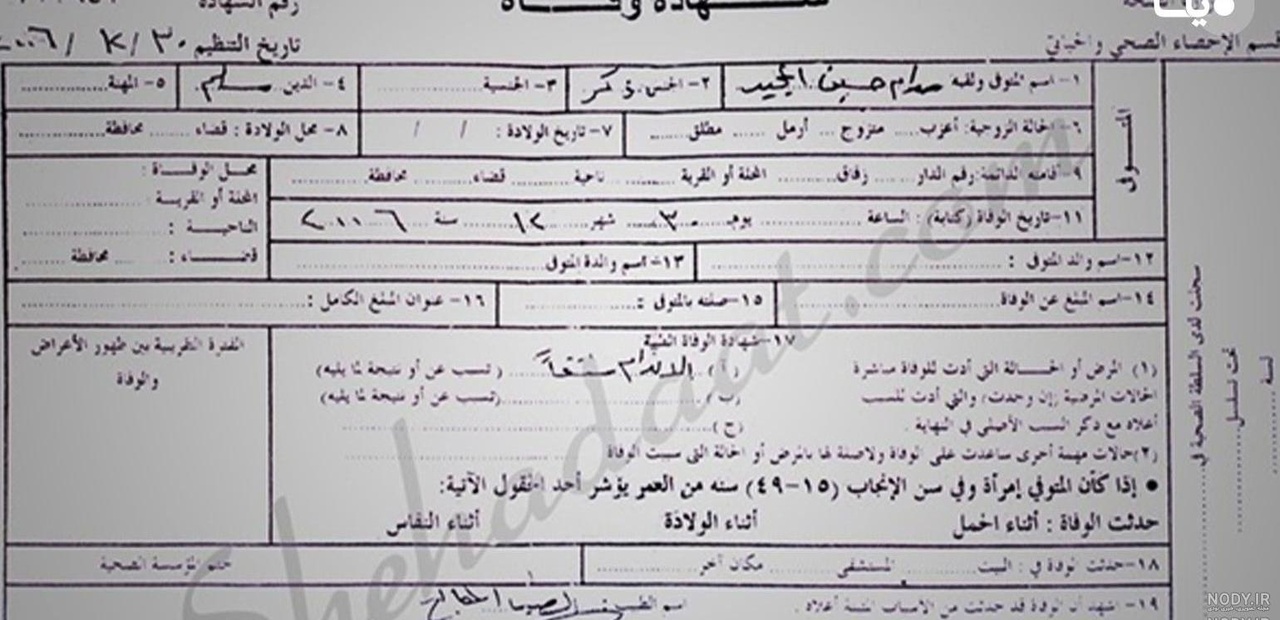 شهادة وفاة
رقم الشهادة
قسم الإحصاء الصحي والحياتي
تاريخ التنظيم ٣٠/١٢/٢٠٠٦
١- اسم المتوفى ولقبه صدام حسين المجيد ٢- الجنس ذكر ٣- الجنسية ٤- الدين مسلم ٥- المهنة
٦- الحالة الزوجية: أعزب متزوج أرمل مطلق ٧- تاريخ الولادة: / / ٨- محل الولادة: قضاء محافظة
٩- إقامته الدائمة: رقم الدار زقاق المحلة أو القرية ناحية قضاء محافظة
محل الوفاة:
المحلة أو القرية:
الناحية:
قضاء: محافظة
١١- تاريخ الوفاة (كتابة): الساعة يوم ٣٠ شهر ١٢ سنة ٢٠٠٦
المتوفى
١٢- اسم والد المتوفى: ١٣- اسم والدة المتوفى
١٤- اسم المبلغ عن الوفاة ١٥- صلته بالمتوفى: ١٦- عنوان المبلغ الكامل:
١٧- شهادة الوفاة الطبية
الفترة التقريبية بين ظهور الأعراض
والوفاة
(١) المرض أو الحالة التي أدت للوفاة مباشرة (أ) الإعدام شنقاً (تسبب عن أو نتيجة لما يليه)
الحالات المرضية (إن وجدت) والتي أدت للسبب (ب) (تسبب عن أو نتيجة لما يليه)
أعلاه مع ذكر السبب الأصلي في النهاية. (ج)
(٢) حالات مهمة أخرى ساعدت على الوفاة ولا صلة لها بالمرض أو الحالة التي سببت الوفاة
• إذا كان المتوفي إمرأة وفي سن الإنجاب (١٥-٤٩) سنه من العمر يؤشر أحد الحقول الآتية:
حدثت الوفاة : أثناء الحمل أثناء الولادة أثناء النفاس
١٨- حدثت الوفاة في: البيت المستشفى مكان آخر ختم المؤسسة الصحية
١٩- أشهد أن الوفاة قد حدثت من الأسباب المبينة أعلاه. اسم الطبيب
سجلت لدى السلطة الصحية في
تحت تسلسل
لسنة
Shehadaat.com
NODY.IR